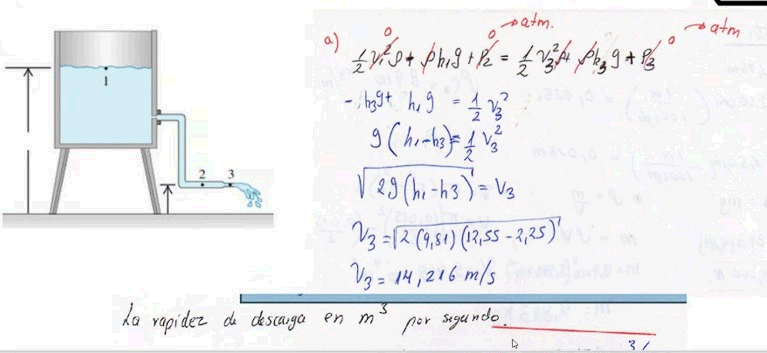 a) ½ v₁² ρ + ρ h₁ g + P₂ = ½ v₃² ρ + ρ h₃ g + P₃
0 0 → atm. 0 → atm
- h₃g + h₁ g = ½ v₃²
g (h₁-h₃) = ½ v₃²
√2g (h₁-h3) = V₃
V₃ = √2 (9,81) (12,55 - 2,25)
V₃ = 14,216 m/s
1
2 3
La rapidez de descarga en m³ por segundo.